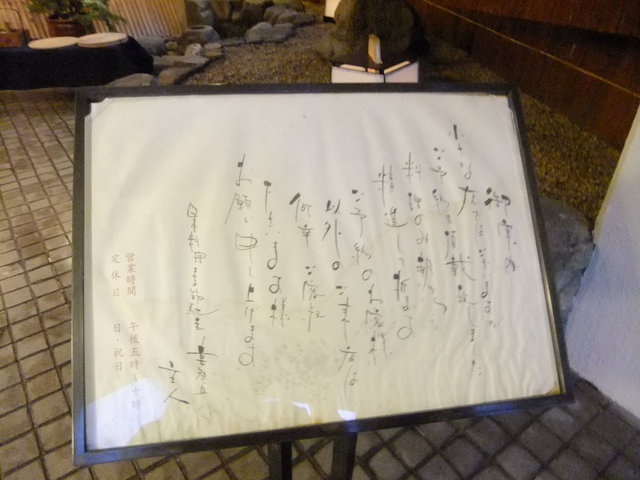 御席の
小さな店ではございますが
ご予約を頂戴致しました
料理のみ朝から
精進して居ます
ご予約のお客様
以外のご来店は
何卒ご容赦
下さいます様
お願い申し上げます
日本料理
主人
営業時間 午後五時~十時
定休日 日・祝日